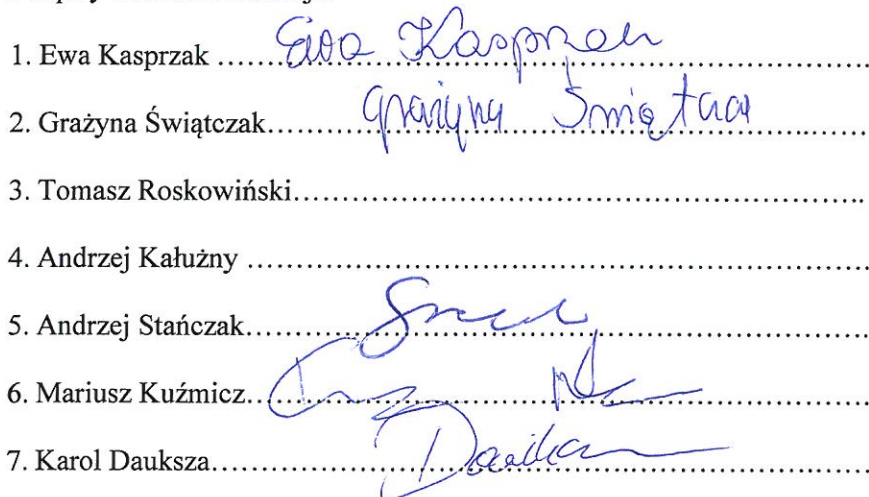 1. Ewa Kasprzak ..... Ewa Kasprzak
2. Grażyna Świątczak..... Grażyna Świątczak
3. Tomasz Roskowiński.....
4. Andrzej Kałużny .....
5. Andrzej Stańczak.....
6. Mariusz Kuźmicz.....
7. Karol Dauksza.....